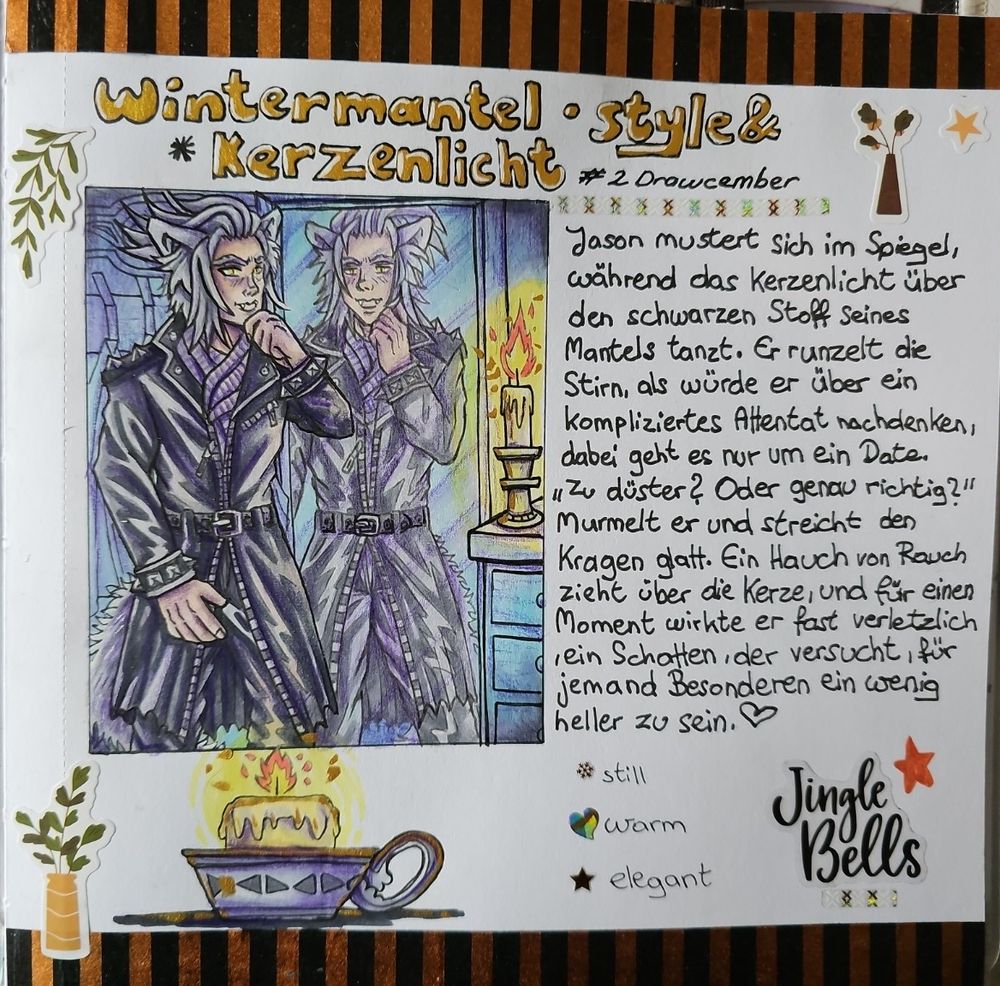 Wintermantel · style &
* Kerzenlicht
#2 Drawcember
Jason mustert sich im Spiegel,
während das Kerzenlicht über
den schwarzen Stoff seines
Mantels tanzt. Er runzelt die
Stirn, als würde er über ein
kompliziertes Attentat nachdenken,
dabei geht es nur um ein Date.
„Zu düster? Oder genau richtig?"
Murmelt er und streicht den
Kragen glatt. Ein Hauch von Rauch
zieht über die Kerze, und für einen
Moment wirkte er fast verletzlich
, ein Schatten, der versucht, für
jemand Besonderen ein wenig
heller zu sein. ♡
still
warm
elegant
Jingle
Bells